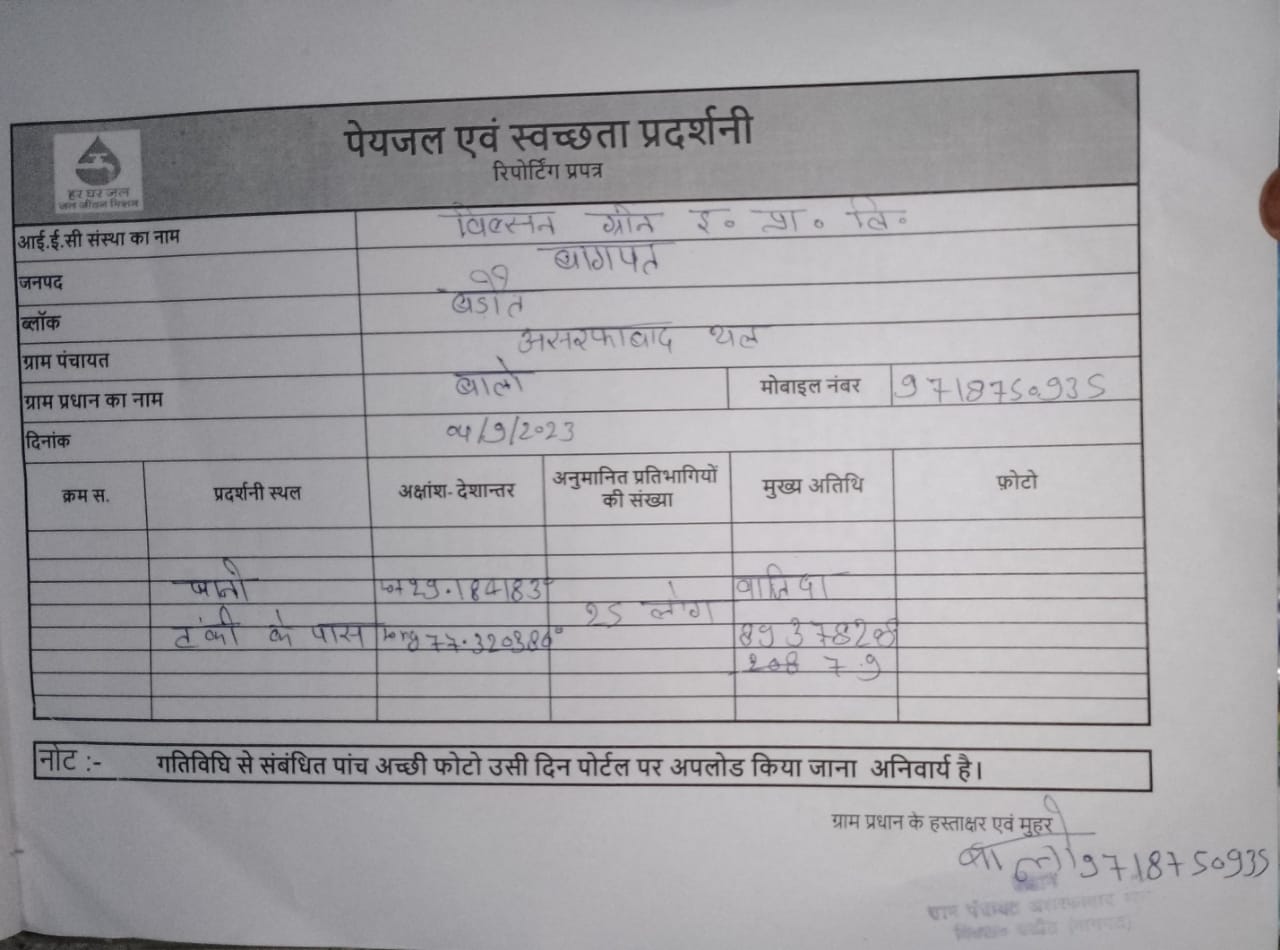 पेयजल एवं स्वच्छता प्रदर्शनी
रिपोर्टिंग प्रपत्र
हर घर जल
जल जीवन मिशन
आई.ई.सी संस्था का नाम विल्सन ग्रीन इ. प्रा. लि.
जनपद बागपत
ब्लॉक बड़ौत
ग्राम पंचायत असरफाबाद थल
ग्राम प्रधान का नाम बालो मोबाइल नंबर 9718750935
दिनांक 04/9/2023
क्रम स. प्रदर्शनी स्थल अक्षांश- देशान्तर अनुमानित प्रतिभागियों की संख्या मुख्य अतिथि फ़ोटो
29.184183°
25 लोग
टंकी के पास long 77.320380° 8937828
नोट :- गतिविधि से संबंधित पांच अच्छी फोटो उसी दिन पोर्टल पर अपलोड किया जाना अनिवार्य है।
ग्राम प्रधान के हस्ताक्षर एवं मुहर
बालो 9718750935
ग्राम पंचायत